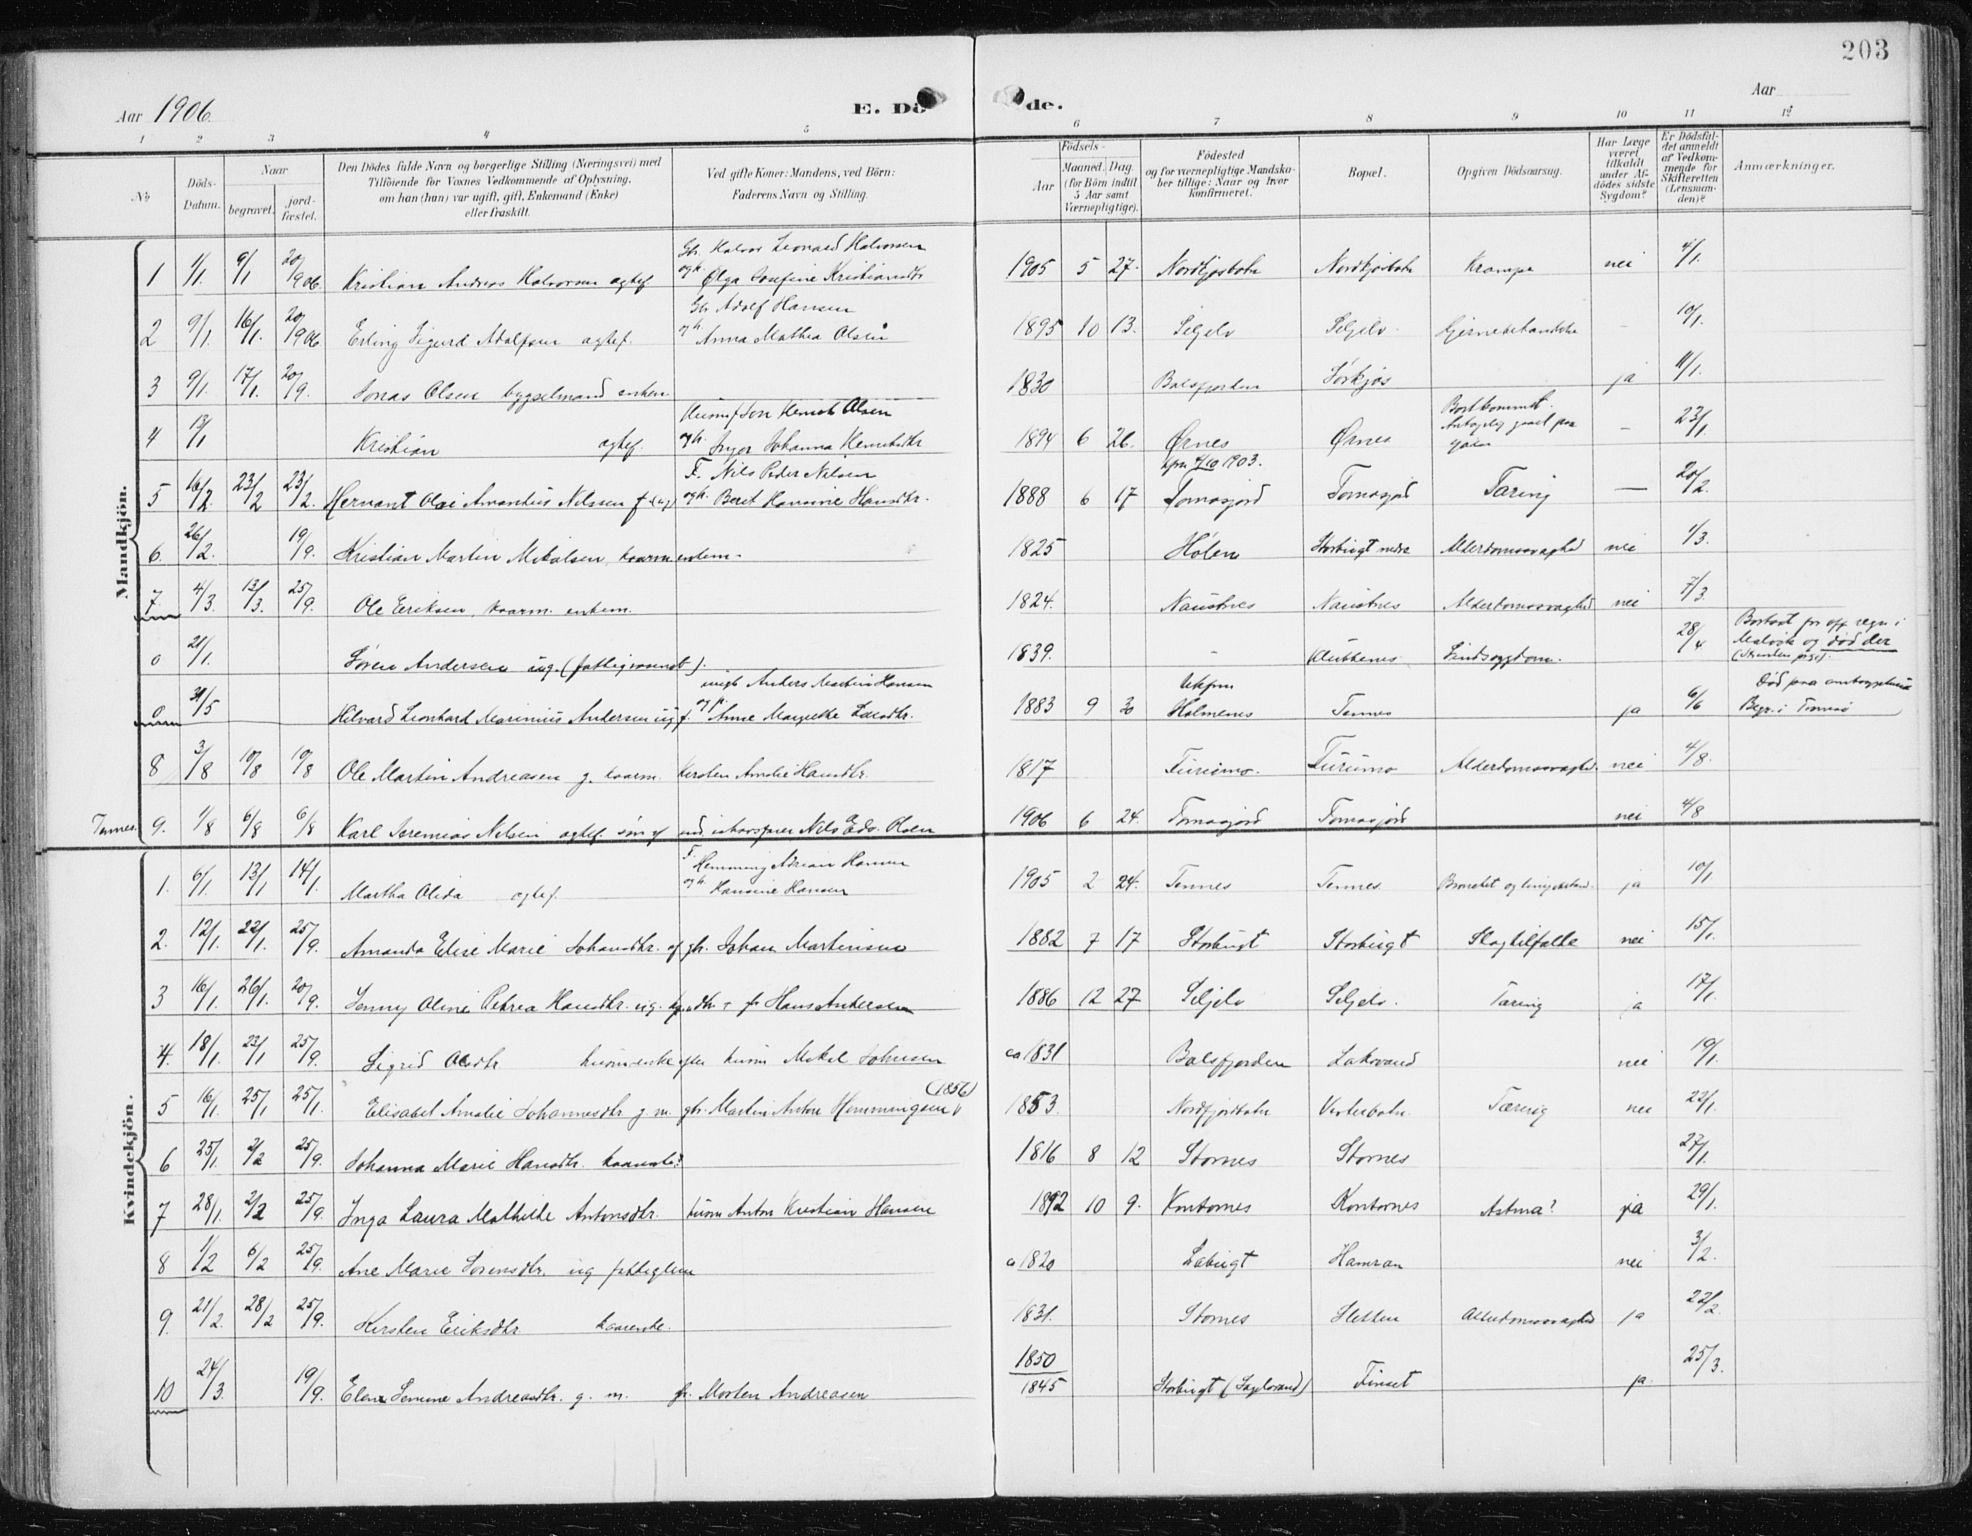 203
Aar 1906.
E. Dö de.
Aar
1 2 3 4 5 6 7 8 9 10 11 12
No. Döds-Datum. Naar begravet. jord-fæstet. Den Dödes fulde Navn og borgerlige Stilling (Næringsvei) med Tilföiende for Voxnes Vedkommende af Oplysning, om han (hun) var ugift, gift, Enkemand (Enke) eller fraskilt. Ved gifte Koner: Mandens, ved Börn: Faderens Navn og Stilling. Födsels- Aar Maaned. Dag. (for Börn indtil 5 Aar samt Værnepligtige). Födested og for værnepligtige Mandskaber tillige: Naar og hvor konfirmeret. Bopæl. Opgiven Dödsaarsag. Har Læge været tilkaldt under Afdödes sidste Sygdom? Er Dödsfaldet anmeldt af Vedkommende for Skifteretten (Lensmanden)? Anmærkninger.
Mandkjön.
Gbr. Halvor Leonard Halvorsen
1 1/1. 9/1 20/9 06 Kristian Andreas Halvorsen ægtef. og h. Olga Josefine Kristiansdtr. 1905 5 27. Nordkjosbotn Nordkjosbotn Krampe nei 4/1.
Gbr. Adolf Hansen
2 9/1. 16/1. 20/9 06 Erling Sigurd Adolfsen ægtef. og h. Anna Mathea Olsen 1895 10 13. Seljelv Seljelv. Hjernebetændelse — 10/1.
3 9/1. 17/1. 20/9. Jonas Olsen bygselmand enkem. 1830 Balsfjorden Sørkjos ja 11/1.
4 13/1 Kristian ægtef. og h. Inger Johanna 1894 6 26. Ørnes Ørnes Bortkommet. — 23/1.
kfm. 4/10 1903.
F. Nils Peder Nilsen
5 16/2 23/2 23/2. Hernant Olai Amantius Nilsen og h. Berit Hansine Hansdtr. 1888 6 17 Tomasjord Tomasjord Tæring — 20/2.
6. 26/2. 19/9. Kristian Martin Mikalsen, kaarm. enkem. 1825 Hølen Storbugt nedre Alderdomssvaghed nei 1/3.
7. 4/3. 13/3. 25/9. Ole Eriksen, kaarm. enkem. 1824. Naustnes Naustnes Alderdomssvaghed nei 7/3.
0 21/1. Søren Andersen ug. (fattigvæsenet). 1839. Klubbenes Sindssygdom. 28/4 Bortsat for off. regn. i og død der
ungk. Anders Martin Hansen
0 31/5 Hilvard Leonhard Marinius Andersen ug. f. og p. Anne Margrethe Larsdtr. 1883 9 30 Holmenes Tennes ja 6/6 Død paa amtssygehuset Begr. i Tromsø
8 3/8 10/8 10/8 Ole Martin Andreasen g. kaarm. Kirsten Amalie Hansdtr. 1817 Furumo. Furumo Alderdomssvaghed. nei 4/8.
Tennes. 9. 1/8 6/8 6/8 Karl Jeremias Nilsen ægtef. søn af Nils Edv. Olsen 1906 6 24. Tomasjord Tomasjord nei 4/8
Kvindekjön.
F. Hemming Adrian Hansen
1. 6/1. 13/1 14/1. Martha Olida ægtef. og h. Hansine Hansen 1905 2 24. Tennes Tennes. ja 10/1.
2. 12/1. 22/1. 25/9. Amanda Elise Marie Johansdtr. af gbr. Johan Martinsen 1882 7 17 Storbugt Storbugt Slagtilfælde nei 15/1.
3 16/1. 26/1. 20/9. Jenny Oline Petrea Hansdtr. ug. Hans Andersen 1886 12 27 Seljelv Seljelv. Tæring ja 17/1.
4. 18/1. 23/1 25/9. Sigrid Olsdtr. husm. enke efter husm. Mikel Johnsen ca 1831 Balsfjorden Laksvand nei 19/1.
5 16/1. 25/1 25/1. Elisabet Amalie Johannesdtr. g. m. gbr. Martin Anton Hemmingsen (1856) 1853. Nordfjordbotn Vesterbotn. Tæring nei 22/1.
6 25/1. 2/2 25/9. Johanna Marie Hansdtr. 1816 8 12 Stornes Stornes 27/1.
7 28/1. 2/2 25/9. Inga Laura Mathilde Antonsdtr. husm. Anton Kristian Hansen 1892 10 9. Kontornes Kontornes Astma? ja 29/1.
8 1/2 6/2 25/9. Ane Marie Sørensdtr. ug. fattiglem ca 1820 Løbugt Hamran nei 3/2.
9. 21/2. 28/2 25/9. Kirsten Eriksdtr. kaarenke. 1831. Stornes Sletten Alderdomssvaghed ja 22/2.
10 24/3 19/9. Elen Andreasdtr. g. m. fr. Morten Andreasen 1850 1845 Storbugt (Sagelvvand) Finset ja. 25/3.